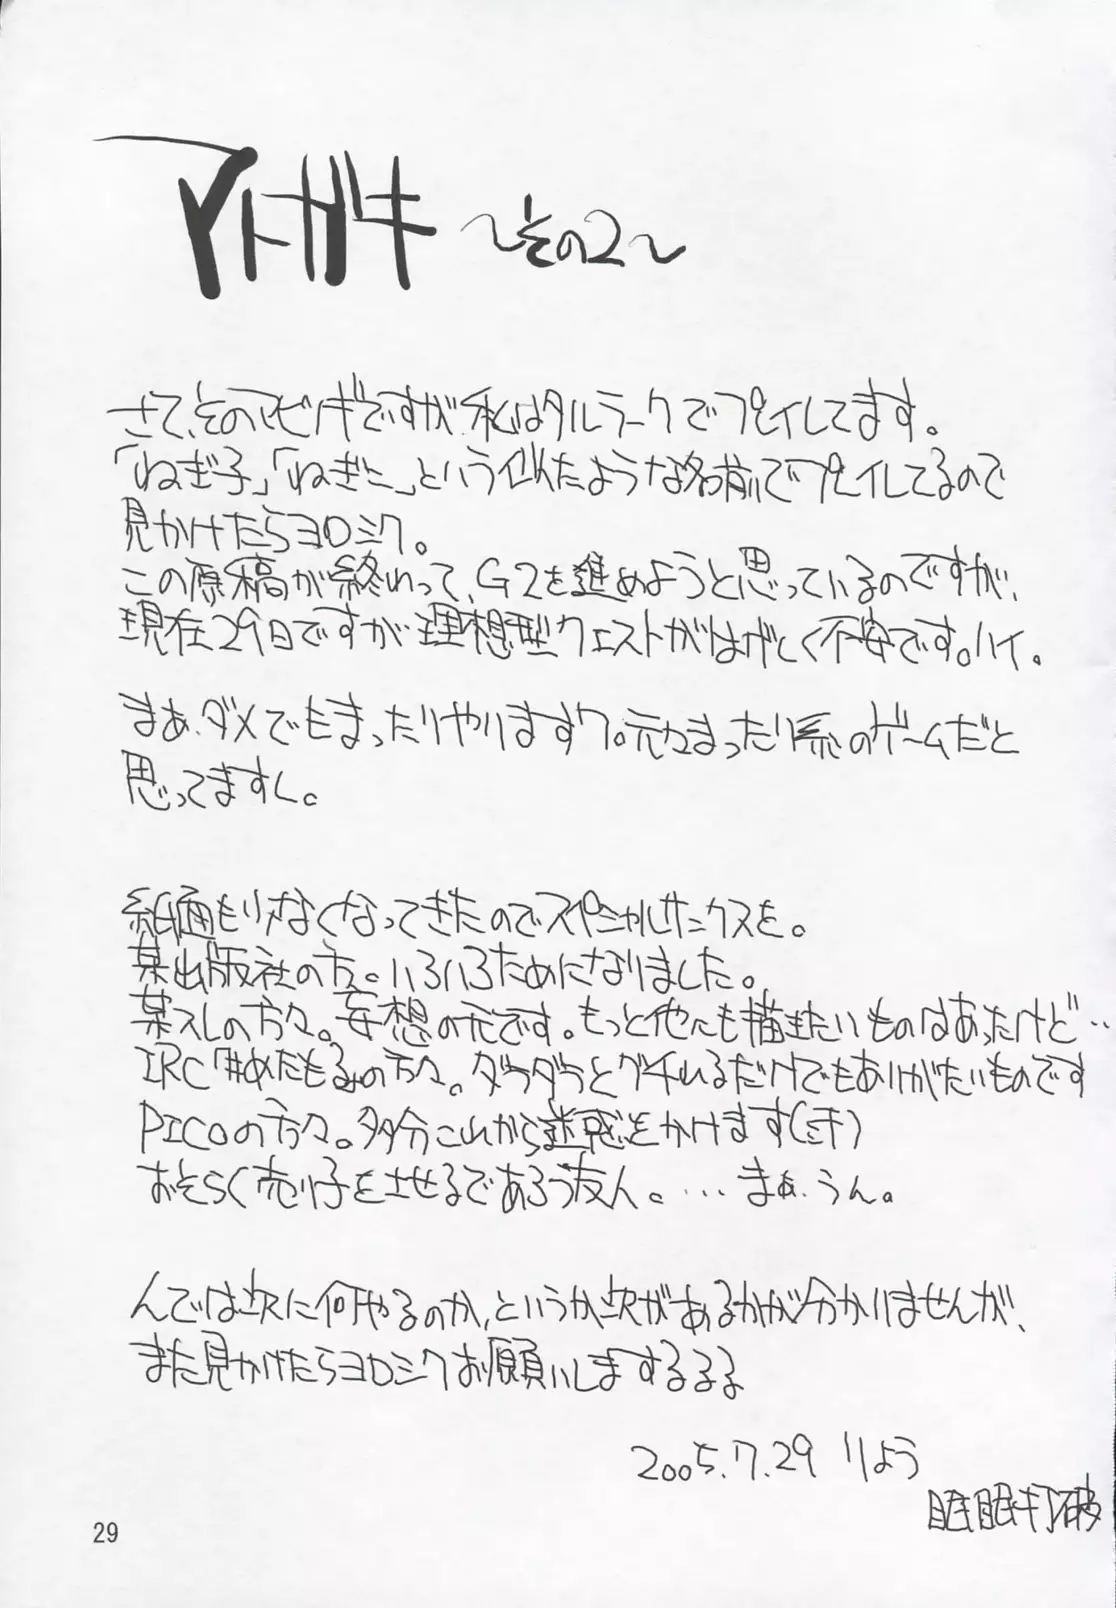 アトガキ 〜その2〜
さて、そのマビノギですが、私はタルラークでプレイしてます。
「ねぎ子」「ねぎこ」という似たような名前でプレイしてるので
見かけたらヨロシク。
この原稿が終わって、G2を進めようと思っているのですが、
現在29日ですが理想型クエストがはげしく不安です。ハイ。
まぁ、ダメでもまったりやりますワ。元々まったり系のゲームだと
思ってますし。
紙面も少なくなってきたのでスペシャルサンクスを。
某出版社の方。いろいろためになりました。
某スレの方々。妄想の元です。もっと他にも描きたいものはあったけど…
IRC「#めたもる」の方々。ダラダラとグチれるだけでもありがたいものです
PICOの方々。多分これから迷惑をかけます(汗)
おそらく売り子をさせるであろう友人。…まぁ、うん。
んでは次に何やるのか、というか次があるかが分かりませんが、
また見かけたらヨロシクお願いしまするるる
2005.7.29 りょう
眠眠打破
29